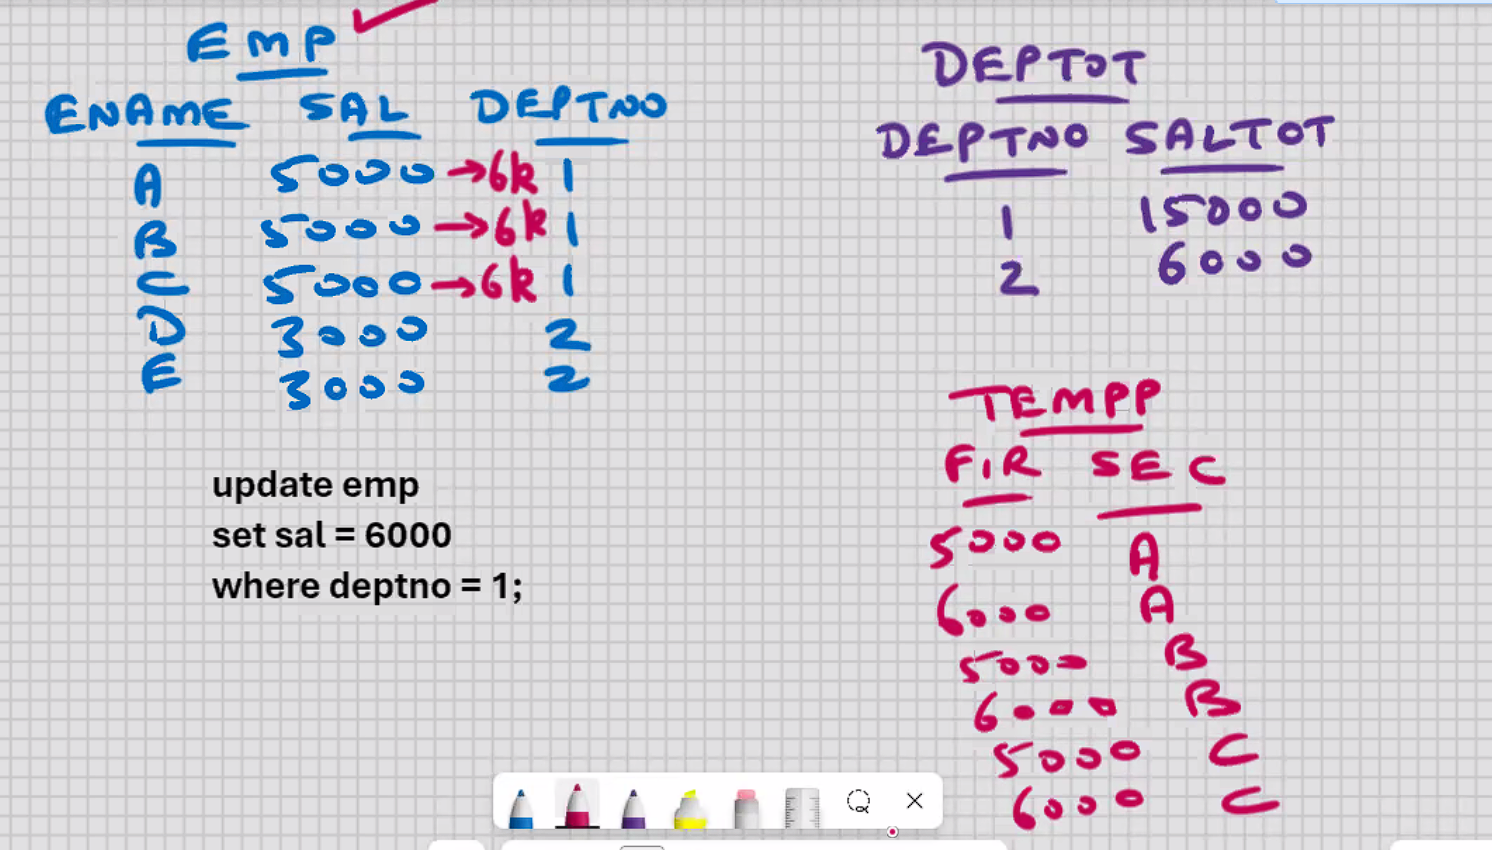 EMP
ENAME SAL DEPTNO
A 5000 →6k 1
B 5000 →6k 1
C 5000 →6k 1
D 3000 2
E 3000 2
update emp
set sal = 6000
where deptno = 1;
DEPTOT
DEPTNO SALTOT
1 15000
2 6000
TEMPP
FIR SEC
5000 A
6000 A
5000 B
6000 B
5000 C
6000 C